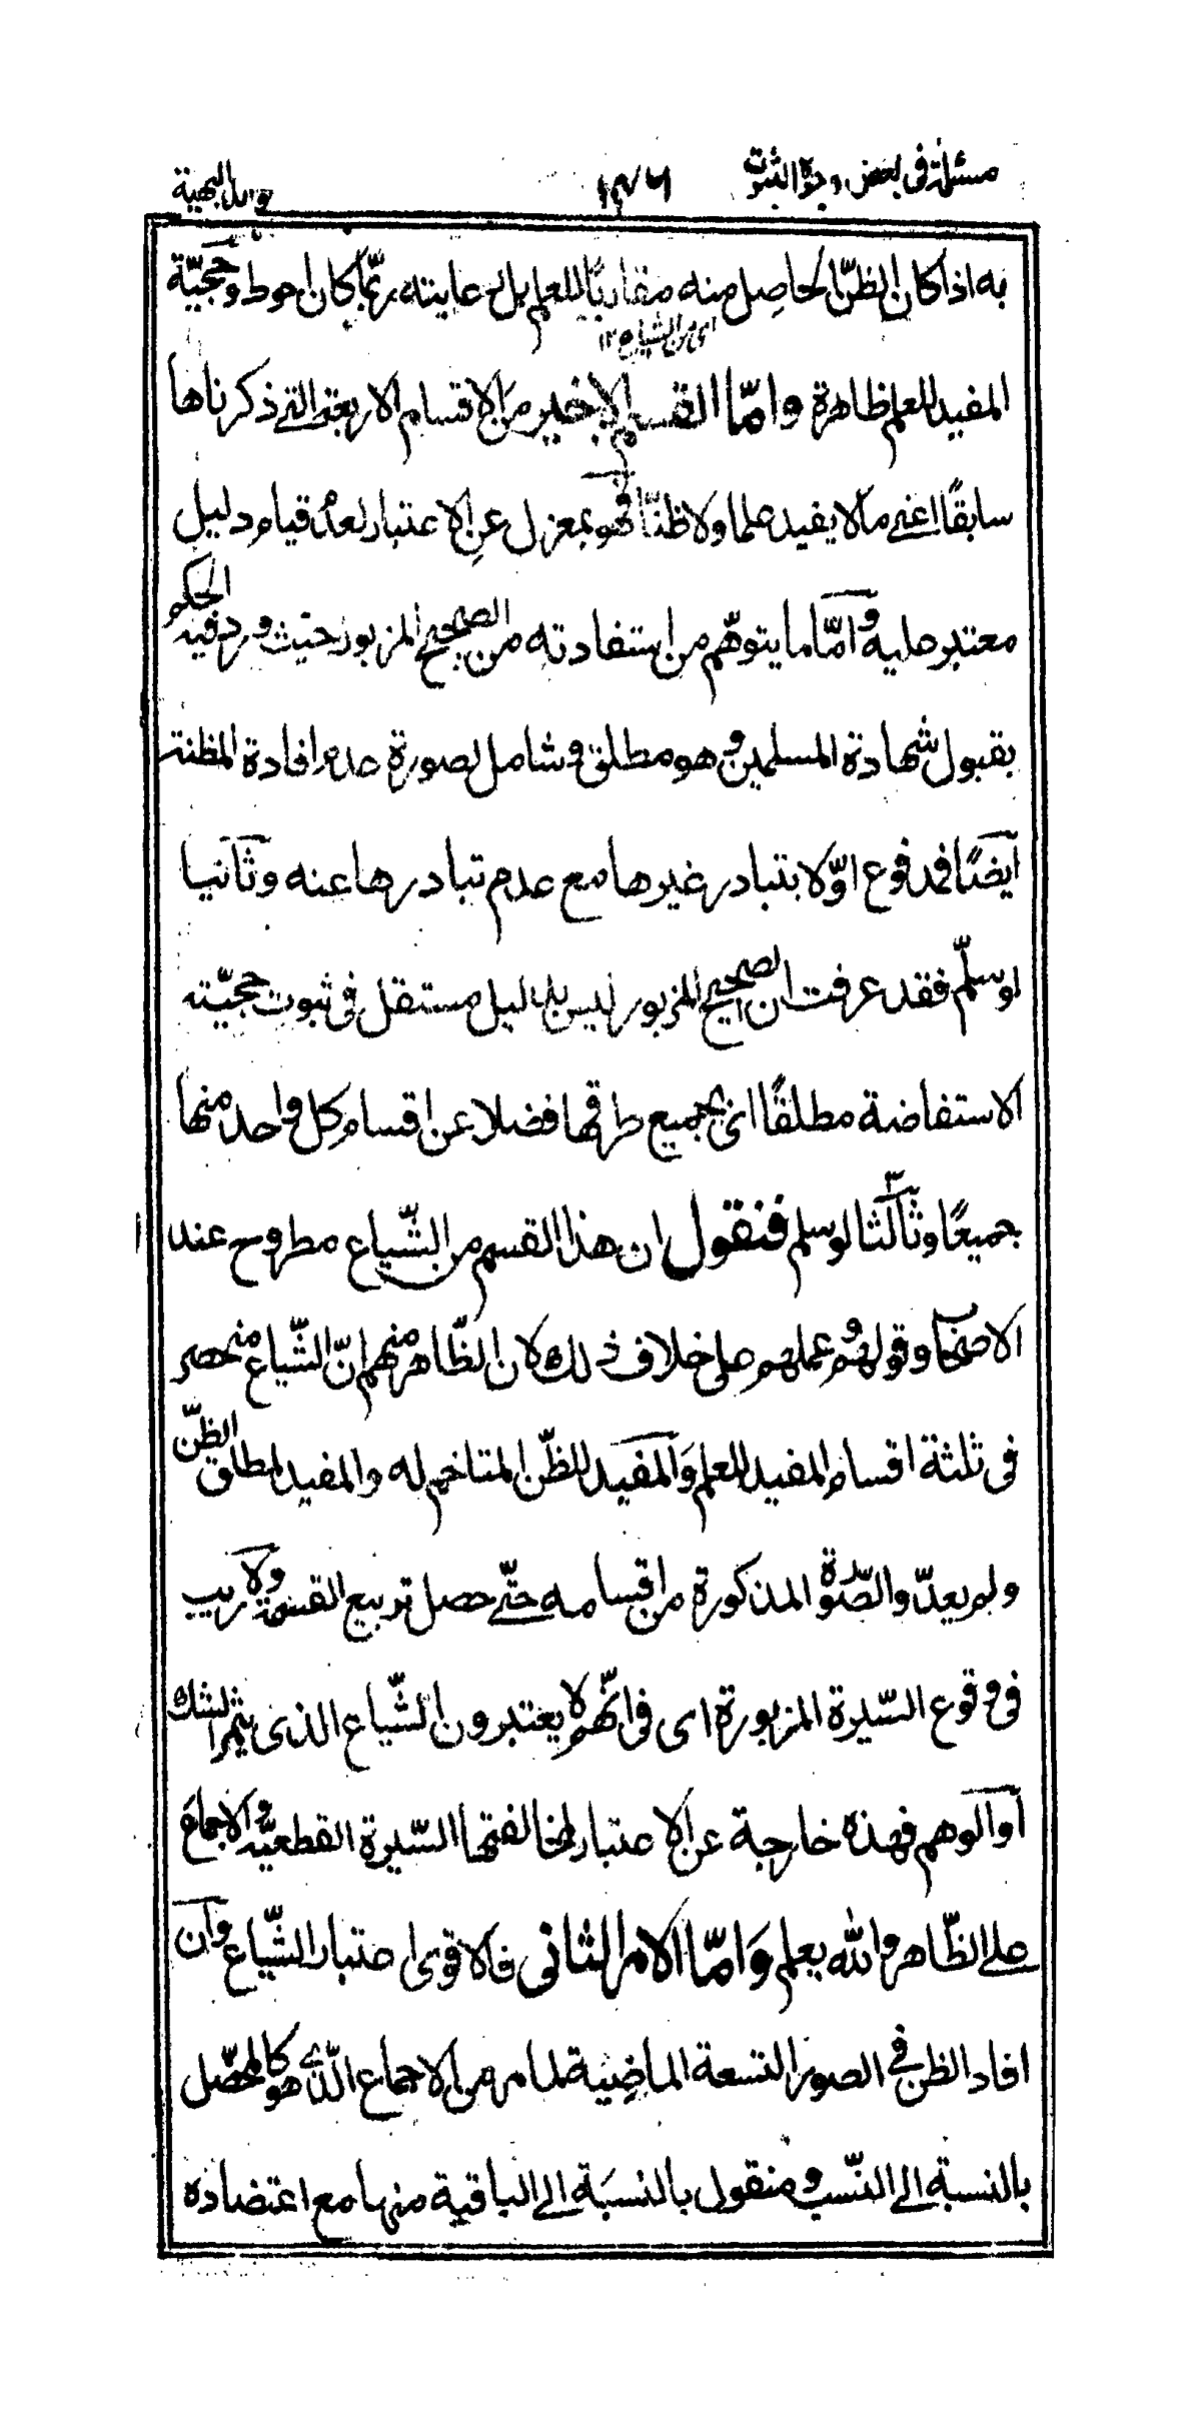 مسئلة فى بعض وجوه الثبوت ١٣٧٦ البهية
به اذا كان الظنّ الحاصل منه مقاربًا للعلم بل رعايته ربّما كان احوط وحجيّة
اى من الشياع ١٢
المفيد للعلم ظاهرة وامّا القسم الاخير من الاقسام الاربعة التي ذكرناها
سابقًا اعني ما لا يفيد علما ولا ظنّا فهو بمعزل عن الاعتبار لعدم قيام دليل
معتبر عليه وامّا ما يتوهّم من استفادته من الصحيح المزبور حيث ورد فيه الحكم
بقبول شهادة المسلمين وهو مطلق وشامل لصورة عدم افادة المظنة
ايضًا فمدفوع اوّلا بتبادر غيرها مع عدم تبادرها عنه وثانيا
لو سلّم فقد عرفت ان الصحيح المزبور ليس بدليل مستقل فى ثبوت حجيّته
الاستفاضة مطلقًا اى بجميع طرقها فضلا عن اقسام كل واحد منها
جميعًا وثالثا لو سلم فنقول ان هذا القسم من الشّياع مطروح عند
الاصحاب وقولهم وعملهم على خلاف ذلك لان الظّاهر منهم انّ الشّياع منحصر
فى ثلثة اقسام المفيد للعلم والمفيد للظّن المتاخم له والمفيد لمطلق الظنّ
ولم يعدّوا الصّورة المذكورة من اقسامه حتّى حصل تربيع القسمة ولا ريب
فى وقوع السّيرة المزبورة اى فى انّهم لا يعتبرون الشّياع الذى يثمر الشك
او الوهم فهذه خارجة عن الاعتبار لمخالفتها السّيرة القطعيّة والاجماع
على الظّاهر والله يعلم وَامّا الامر الثانى فالاقوى اعتبار الشّياع وان
افاد الظن في الصور التسعة الماضية لما مر من الاجماع الّذي هو كالمحصّل
بالنسبة الى النّسب ومنقول بالنسبَة الى الباقية منها مع اعتضاده